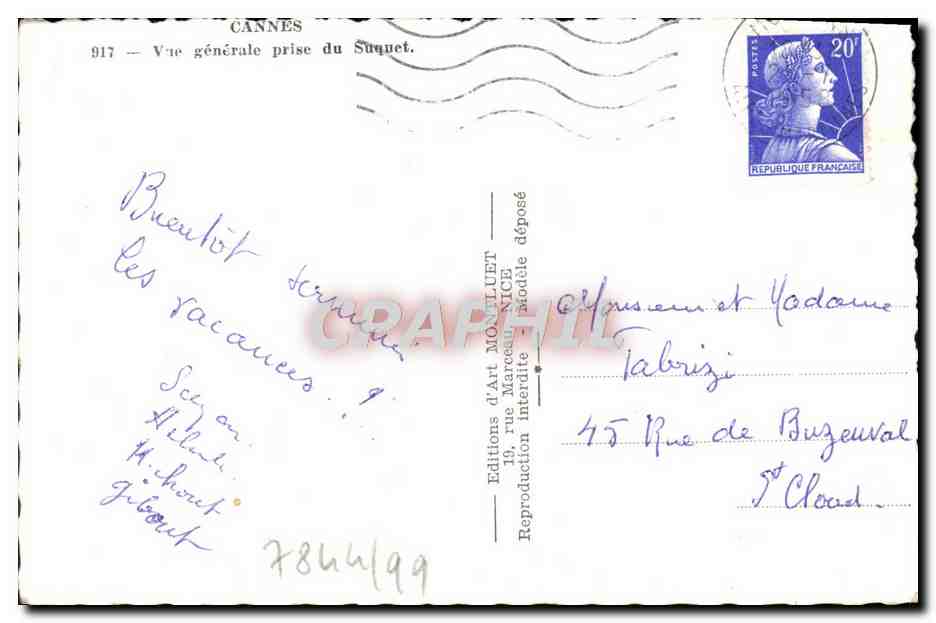 CANNES
917 — Vue générale prise du Suquet.
POSTES
20F
REPUBLIQUE FRANÇAISE
Bientôt terminées
les vacances !
Gibout
7844/99
CRAPHIL
Editions d'Art MONTLUET
19, rue Marceau, NICE
Reproduction interdite - Modèle déposé
Monsieur et Madame
Fabrizi
45 Rue de Buzenval
St Cloud.